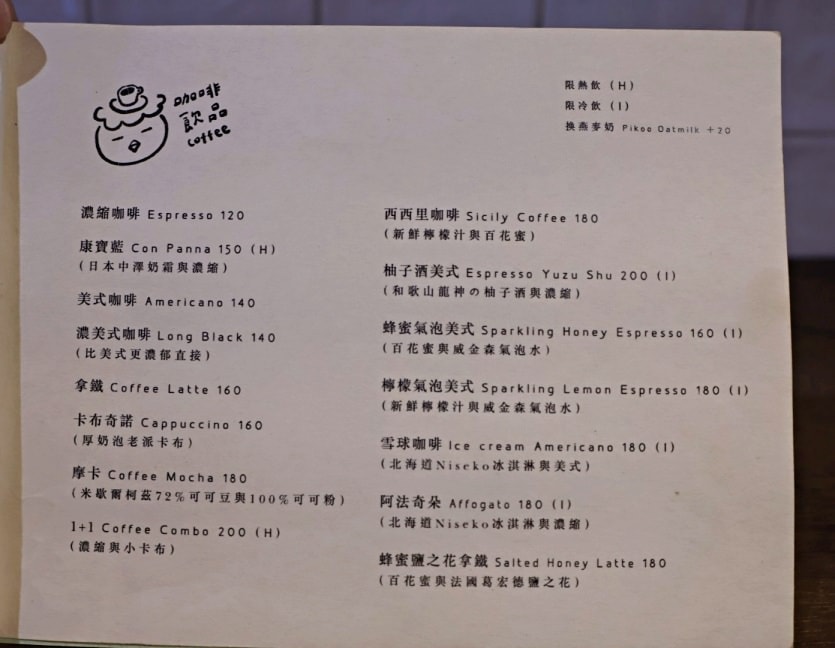 咖啡
飲品
coffee
限熱飲 (H)
限冷飲 (I)
換燕麥奶 Pikoo Oatmilk +20
濃縮咖啡 Espresso 120
康寶藍 Con Panna 150 (H)
(日本中澤奶霜與濃縮)
美式咖啡 Americano 140
濃美式咖啡 Long Black 140
(比美式更濃郁直接)
拿鐵 Coffee Latte 160
卡布奇諾 Cappuccino 160
(厚奶泡老派卡布)
摩卡 Coffee Mocha 180
(米歇爾柯茲72%可可豆與100%可可粉)
1+1 Coffee Combo 200 (H)
(濃縮與小卡布)
西西里咖啡 Sicily Coffee 180
(新鮮檸檬汁與百花蜜)
柚子酒美式 Espresso Yuzu Shu 200 (I)
(和歌山龍神の柚子酒與濃縮)
蜂蜜氣泡美式 Sparkling Honey Espresso 160 (I)
(百花蜜與威金森氣泡水)
檸檬氣泡美式 Sparkling Lemon Espresso 180 (I)
(新鮮檸檬汁與威金森氣泡水)
雪球咖啡 Ice cream Americano 180 (I)
(北海道Niseko冰淇淋與美式)
阿法奇朵 Affogato 180 (I)
(北海道Niseko冰淇淋與濃縮)
蜂蜜鹽之花拿鐵 Salted Honey Latte 180
(百花蜜與法國葛宏德鹽之花)